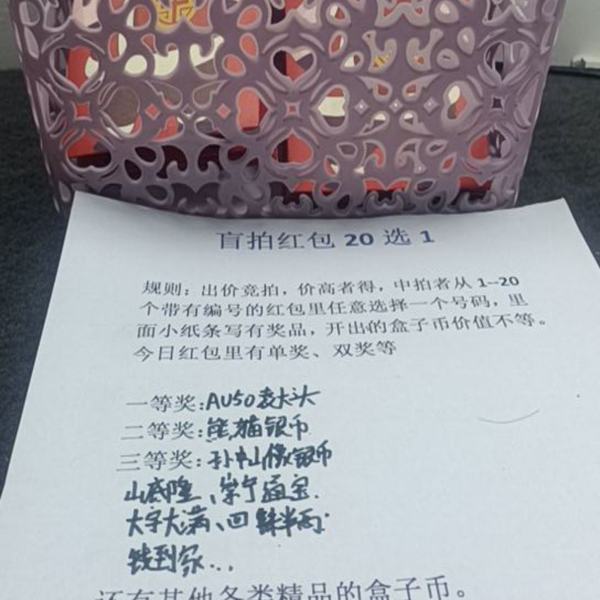 盲拍红包 20 选 1
规则：出价竞拍，价高者得，中拍者从 1--20
个带有编号的红包里任意选择一个号码，里
面小纸条写有奖品，开出的盒子币价值不等。
今日红包里有单奖、双奖等
一等奖:AU50袁大头
二等奖:熊猫银币
三等奖:孙中山像银币
乾隆、崇宁通宝.
大字大满、四銖半两
钱到家...
还有其他各类精品的盒子币。